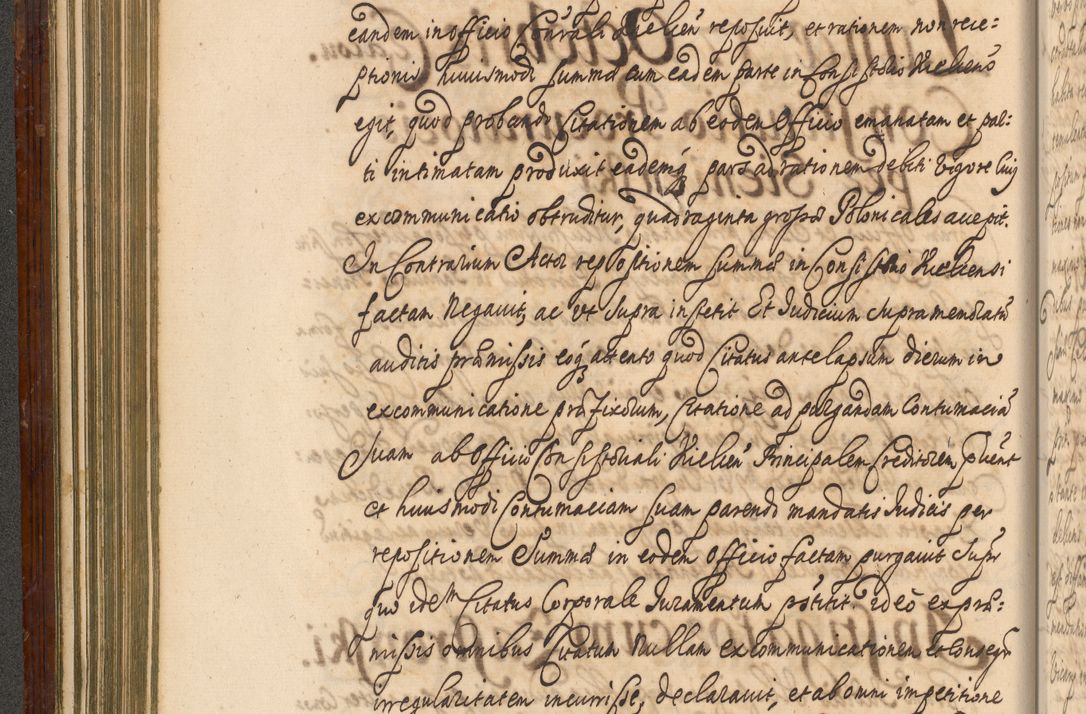 eandem in officio Conrali Kielien reposuit, et rationem non rece=
ptionis huiusmodi summæ cum eadem parte in Consistorio Kielien
egit, quod probando Citationem ab eodem Officio emanatam et par=
ti intimatam produxit eademq pars ad rationem debiti vigore cuiq
excommunicatio obtruditur, quadraginta grossos Polonicales accepit.
In Contrarium Actor repositionem summæ in Consistorio Kielcensi
factam Negavit, ac ut supra institit Et Iudicium supramemoratū
auditis præmissis eoq attento quod Citatus ante lapsum dierum in
excommunicatione præfixorum, Citatione ad purgandam Contumaciā
suam ab Officio Consistoriali Kielien Principalem Creditorem
et huiusmodi Contumaciam suam parendi mandatis Iudicis per
repositionem Summæ in eodem Officio factam purgavit super
quo idem Citatus Corporale Iuramentum pstitit ideo ex præ=
missis omnibus Citatum Nullam excommunicationem et conseqr
irregularitatem incurrisse, declaravit, et ab omni impetitione